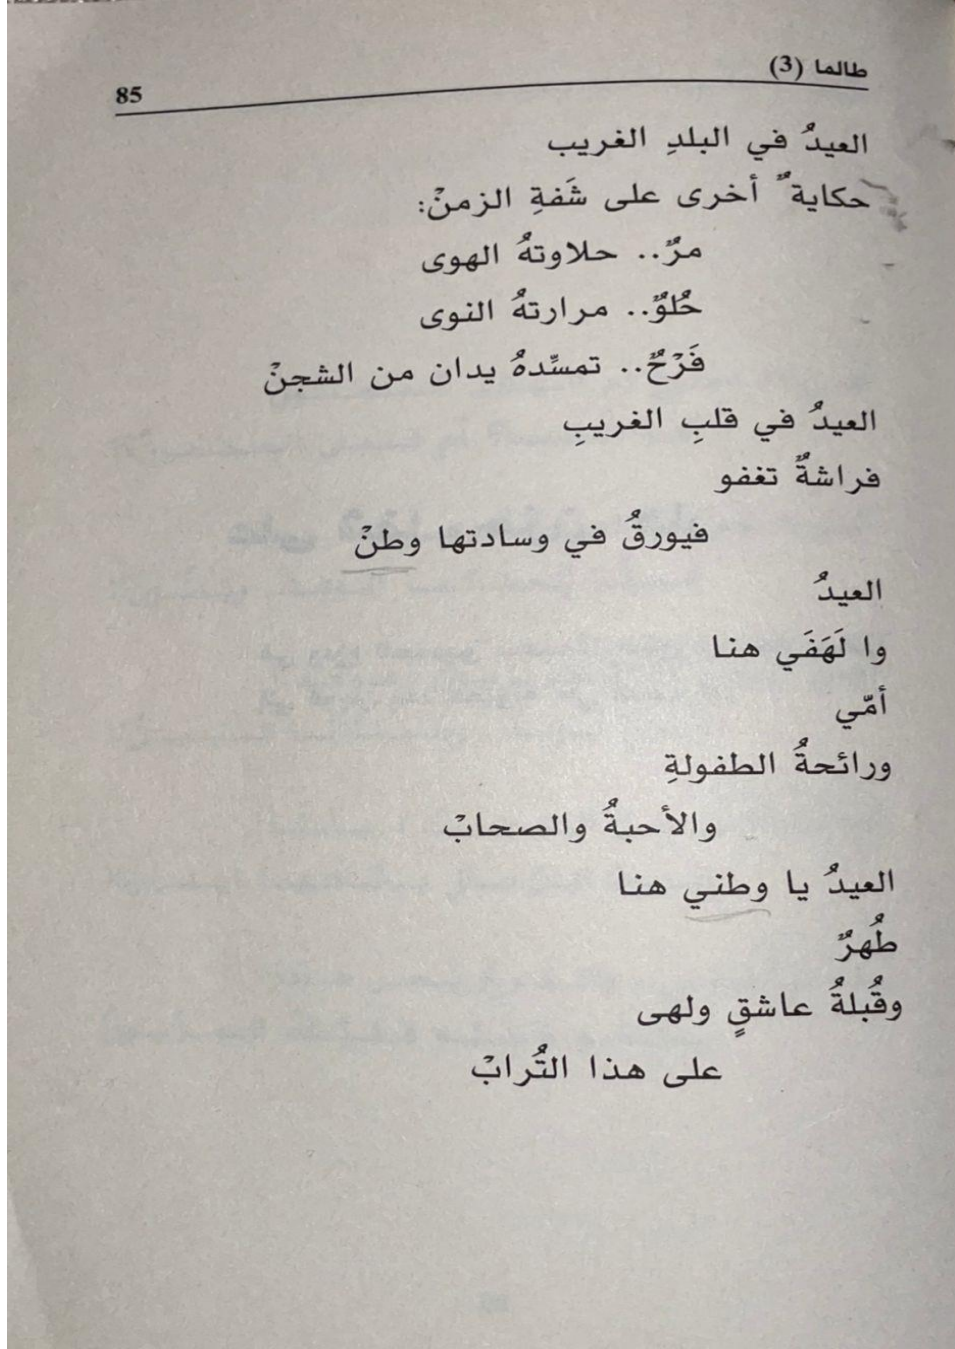 طالما (3)
85
العيدُ في البلدِ الغريب
حكايةٌ أخرى على شَفةِ الزمنْ:
مرٌّ.. حلاوتهُ الهوى
حُلوٌ.. مرارتهُ النوى
فَرْحٌ.. تمسِّدهُ يدان من الشجنْ
العيدُ في قلبِ الغريبِ
فراشةٌ تغفو
فيورقُ في وسادتها وطنْ
العيدُ
وا لَهَفَي هنا
أمّي
ورائحةُ الطفولةِ
والأحبةُ والصحابْ
العيدُ يا وطني هنا
طُهرٌ
وقُبلةُ عاشقٍ ولهى
على هذا التُرابْ